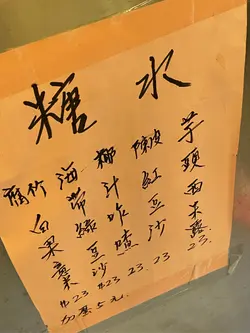 糖水
腐竹白果薏 23
海帶綠豆沙 23
椰汁咋喳 23.
陳皮紅豆沙 23
芋頭西米露 23.
5元